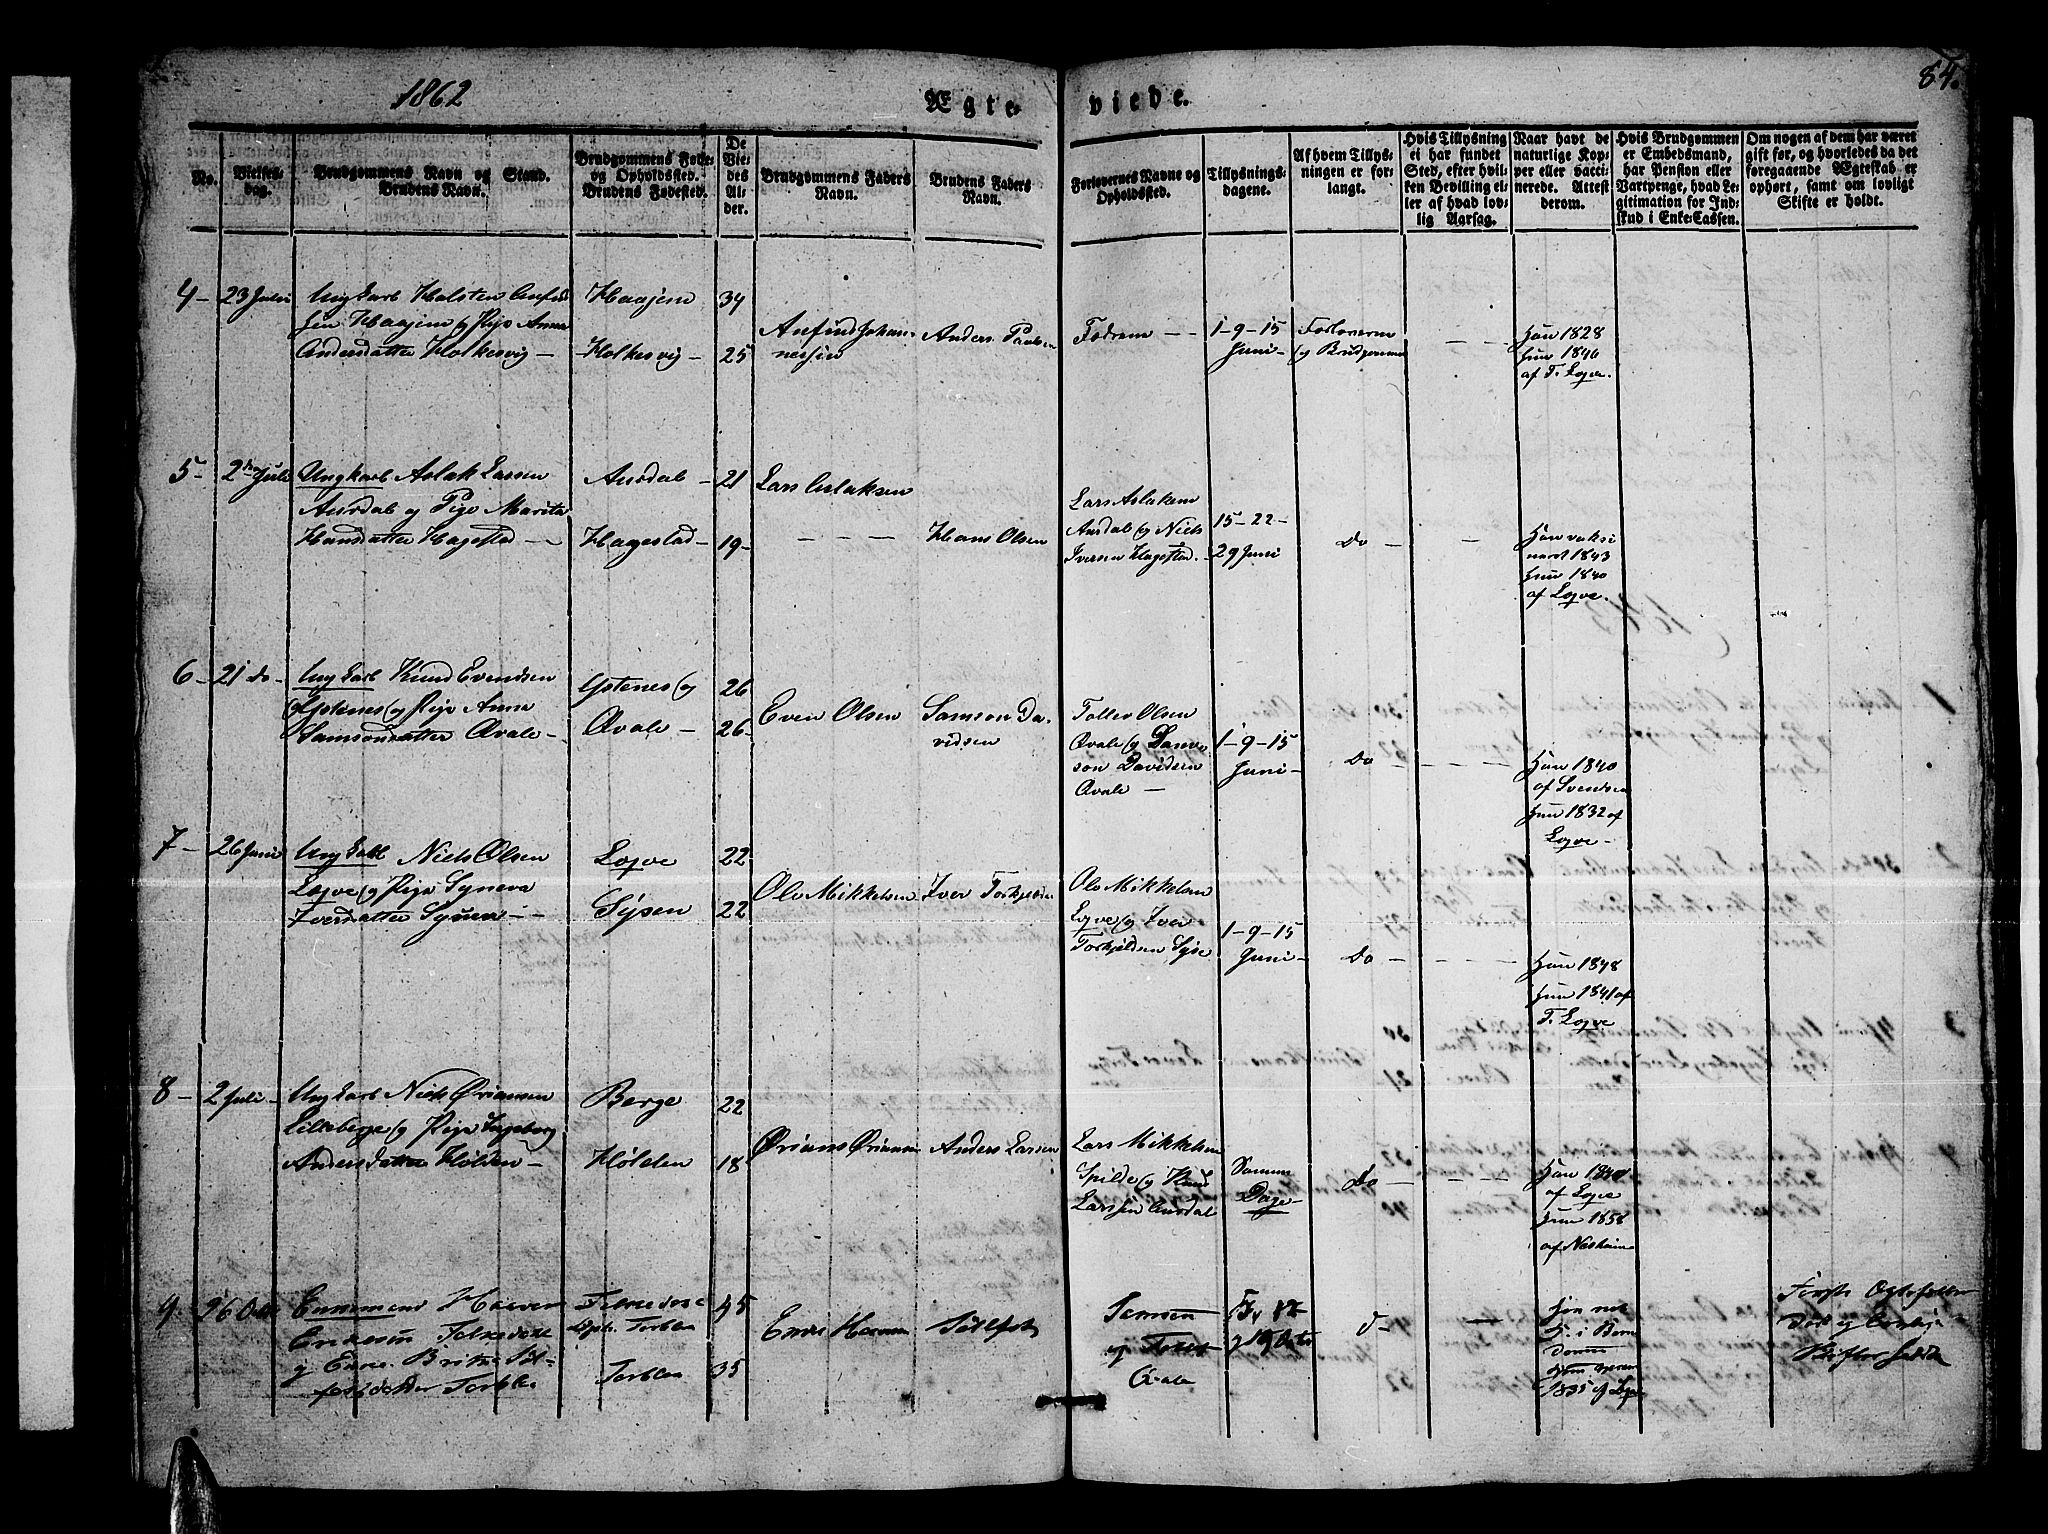 1862
Ægte- viede.
84.
No.
Vielses-
dag.
Brudgommens Navn og Stand.
Brudens Navn.
Brudgommens Føde-
og Opholdssted.
Brudens Fødested.
De
Vie-
des
Al-
der.
Brudgommens Faders
Navn.
Brudens Faders
Navn.
Forlovernes Navne og
Opholdssted.
Tillysnings-
dagene.
Af hvem Tillys-
ningen er for-
langt.
Hvis Tillysning
ei har fundet
Sted, efter hvil-
ken Bevilling el-
ler af hvad lov-
lig Aarsag.
Naar havt de
naturlige Kop-
per eller vacci-
nerede. Attest
derom.
Hvis Brudgommen
er Embedsmand,
har Pension eller
Vartpenge, hvad Le-
gitimation for Ind-
skud i Enke-Cassen.
Om nogen af dem har været
gift før, og hvorledes da det
foregaaende Ægteskab er
ophørt, samt om lovligt
Skifte er holdt.
4 - 23 Juli
Ungkarl Halsten
sen Haajem og Pige Anna
Andersdatter Holkesvig -
Haajem 34
Holkesvig - 25
Anfind Johan-
nessen
Anders Paulsen
Fædrene - -
1-9-15
Juni -
Forloverne
og Brudgommen
Han 1828
Hun 1840
af T. Lojve.
5 - 2 Juli
Ungkarl Aslak Larsen
Aursdal og Pige Marita
Hansdatter Hagestad -
Aursdal - 21
Hagestad - 19 -
Lars Aslaksen
Hans Olsen
Lars Aslaksen
Aursdal og Niels
Iversen Hagestad. -
15-22-
29 Juni
Do -
Han vaksi
neret 1843
Hun 1840
af Lojve.
6 - 21 do -
Ungkarl Knud Evendsen
Ystenes og Pige Anna
Samsonsdatter Qvale -
Ystenes og 26
Qvale - 26 -
Even Olsen
Samson Da-
vidsen
Tollev Olsen
Qvale og Sam-
son Davidsen
Qvale -
1-9-15
Juni -
Do
Han 1840
af Svendsen
Hun 1832 af
Lojve -
7 - 26 Juni
Ungkarl Niels Olsen
Lojve og Pige Syneva
Iversdatter Sysen -
Lojve 22 -
Sysen 22
Ole Mikkelsen
Iver Torkjelsen
Ole Mikkelsen
Lojve og Iver
Torkjelsen Syse
1-9-15
Juni -
Do
Han 1848
Hun 1841 af
T. Lojve
8 - 2 Juli -
Ungkarl Niels Ørjansen
Lilleberge og Pige Ingeborg
Andersdatter Hølden -
Berge 22
Hølden 18
Ørjans Ørjansen
Anders Larsen
Lars Mikkelsen
Spilde og Knud
Larsen Aursdal
Samme
Dage -
Do -
Han 1840
af Lojve
Hun 1858
af Nesheim
9 - 26 Octb
Enkemand Haaver
Ericksen Folkedal
og Enke Britha Søl-
festdatter Torblaa
Folkedal 45
Oph. Torblaa
Torblaa 35
Samson
og Tosten
Qvale
og 19
1835 af Lojve
Først Ægtefeller